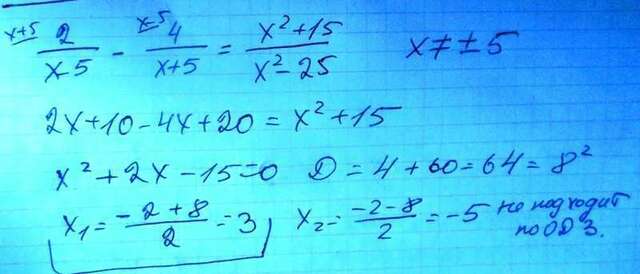 x+5 2/(x-5) - x-5 4/(x+5) = (x²+15)/(x²-25) x≠±5
2x+10-4x+20=x²+15
x²+2x-15=0 D=4+60=64=8²
x₁=(-2+8)/2=3 x₂=(-2-8)/2=-5 не подходит
по ОДЗ.